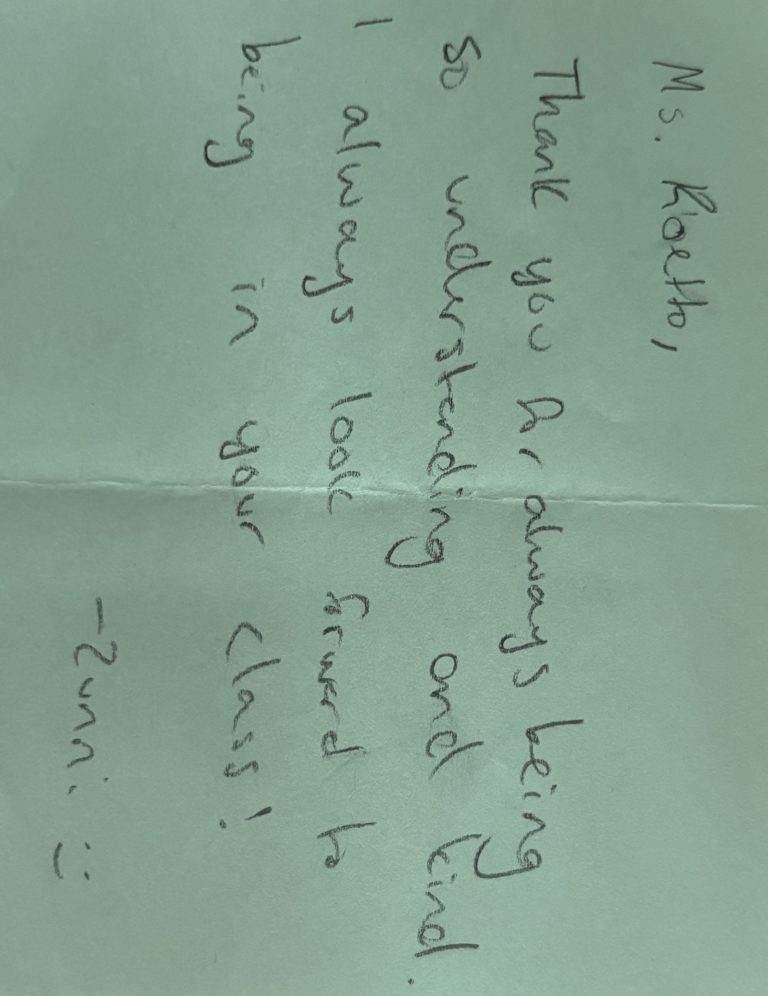 Ms. Rioetto,
Thank you for always being
so understanding and kind.
I always look forward to
being in your class!
-Zunni :)